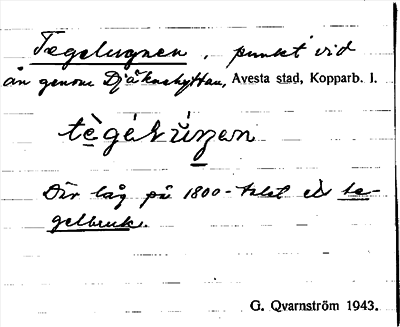 Tegelugnen, punkt vid
ån genom Djäknehyttan, Avesta stad, Kopparb. l.
Där låg på 1800-talet ett te-
gelbruk.
G. Qvarnström 1943.